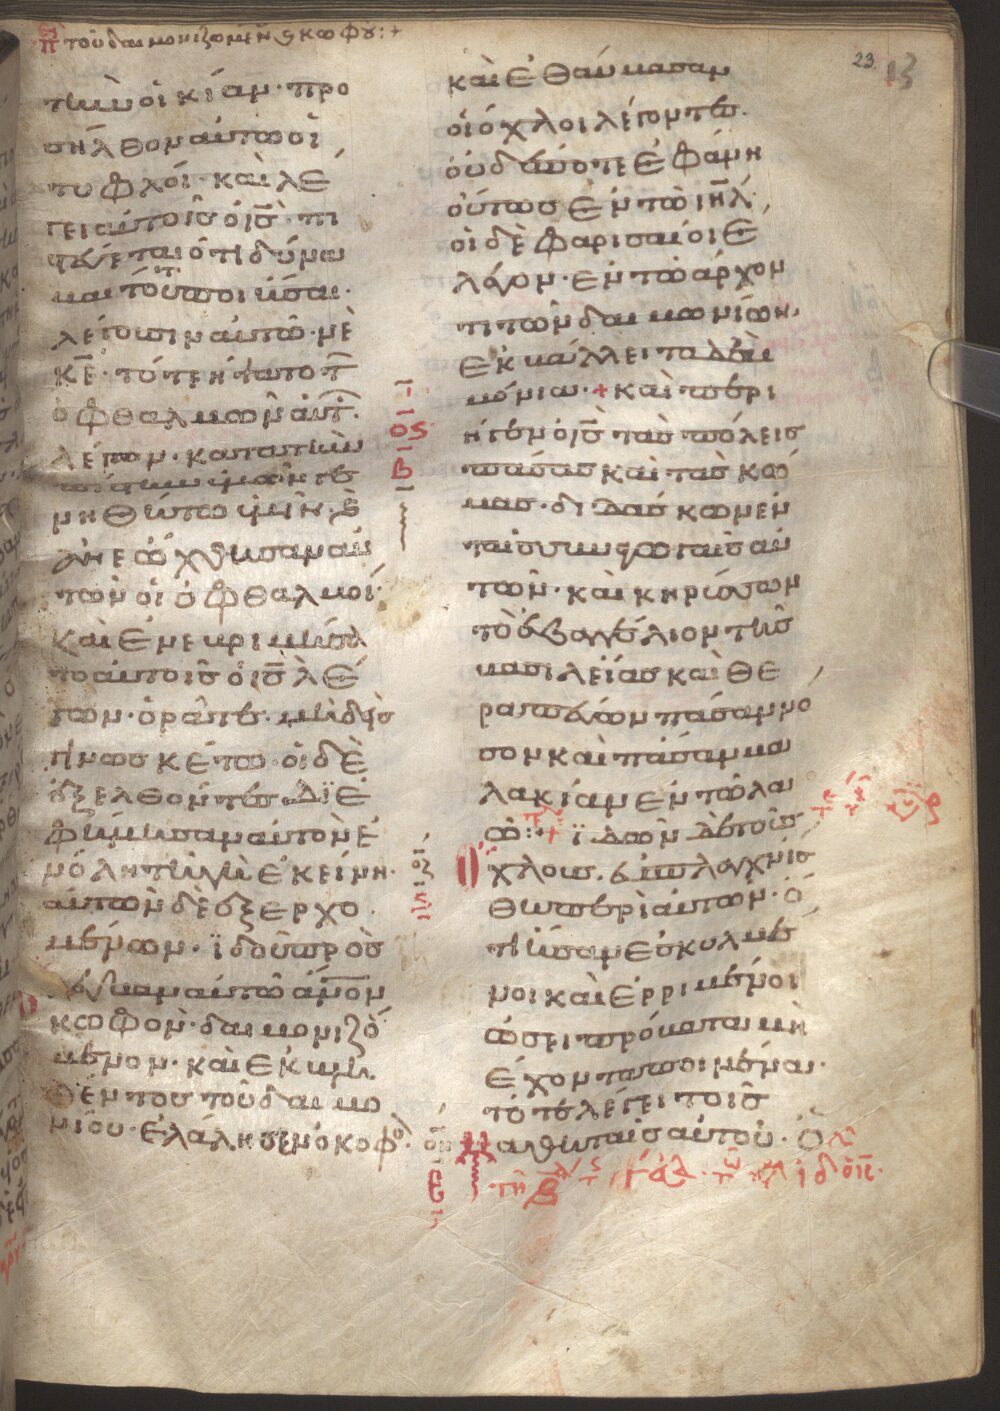 τοῦ δαιμονιζομένς κωφου:+
23
13
τὴν οἰκίαν· προ
σῆλθον αὐτῶ οἱ
τυφλοί· καὶ λέ
γει αὐτοῖς ὁ ῑς̄· πι
στεύεται ὅτι δύνα
μαι τοῦτο ποιῆσαι·
λέγουσιν αὐτῶ· ναὶ
κ̅ε̅· τότε ἥψατο τ̅
ὀφθαλμῶν αὐτ̅·
λέγων· κατὰ τὴν
πίστιν ὑμῶν γε
νηθήτω ὑμῖν· καὶ
ἀνεώχθησαν αὐ
τῶν οἱ ὀφθαλμοί·
καὶ ἐνεβριμήσα
το αὐτοῖς ὁ ῑς̄ λέ
γων· ὁρᾶτε μηδεὶς
γινωσκέτω· οἱ δὲ
ἐξελθόντες διε
φήμησαν αὐτὸν ἐ
ν ὅλη τῆ γῆ ἐκείνη·
αὐτῶν δὲ ἐξερχο
μένων· ἰδοὺ προσ
ήνεγκαν αὐτῶ ἄν̅ο̅ν
κωφὸν· δαιμονιζό
μενον· καὶ ἐκβλη
θέντος τοῦ δαιμο
νίου· ἐλάλησεν ὁ κοφὸ·
ος
β
καὶ ἐθαύμασαν
οἱ ὄχλοι λέγοντες·
οὐδέποτε ἐφάνη
οὕτως ἐν τῶ ι̅η̅λ̅·
οἱ δὲ φαρισαῖοι ἔ
λεγον· ἐν τῶ ἄρχον
τι τῶν δαιμωνίων·
ἐκβάλλει τὰ δαι
μόνια·+ καὶ περι
ῆγεν ὁ ῑς̄ τὰς πόλεις
πάσας καὶ τὰς κώ
μας· διδάσκων ἐν
ταῖς συναγωγαῖς αὐ
τῶν· καὶ κηρύσσων
τὸ εὐαγγέλιον τῆς
βασιλείας καὶ θε
ραπεύων πᾶσαν νό
σον καὶ πᾶσαν μα
λακίαν ἐν τῶ λα
ῶ:+ ἰδὼν δὲ τοὺς
ὄχλους· ἐσπλαγχνίσ
θη περὶ αὐτῶν· ὅ
τι ἦσαν ἐσκυλμέ
νοι καὶ ἐρριμένοι
ὡσεὶ πρόβατα μὴ
ἔχοντα ποιμένα·
τότε λέγει τοῖς
μαθηταῖς αὐτοῦ· ὁ